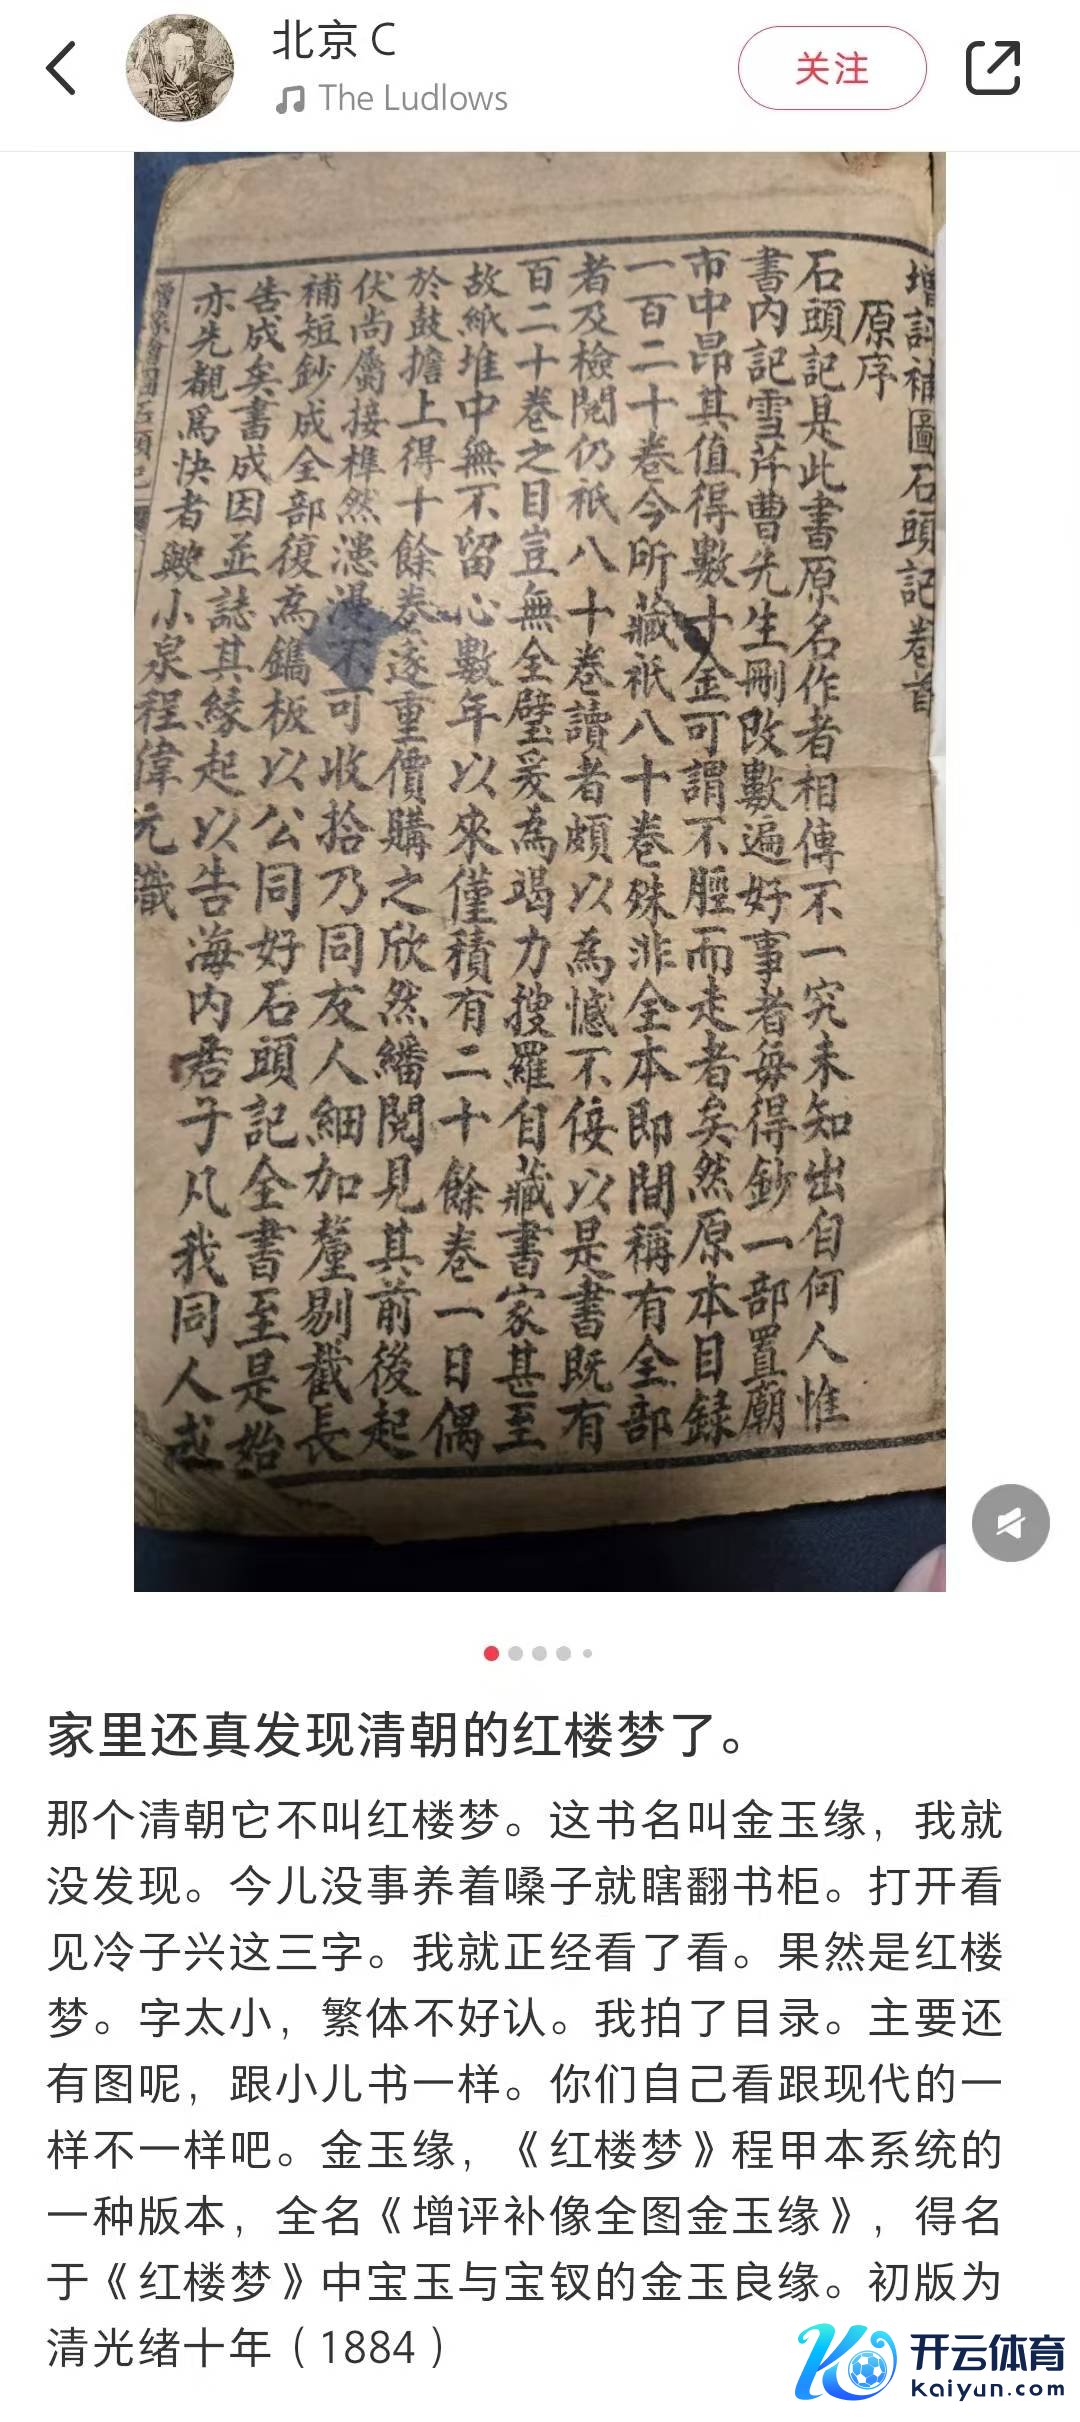 北京 C
The Ludlows
关注
增評補圖石頭記卷首
原序
石頭記是此書原名作者相傳不一究未知出自何人惟
書內記雪芹曹先生刪改數遍好事者每得鈔一部置廟
市中昂其值得數十金可謂不脛而走者矣然原本目錄
一百二十卷今所藏祇八十卷殊非全本即間稱有全部
者及檢閱仍祇八十卷讀者頗以為憾不佞以是書既有
百二十卷之目豈無全璧爰為竭力搜羅自藏書家甚至
故紙堆中無不留心數年以來僅積有二十餘卷一日偶
於鼓擔上得十餘卷遂重價購之欣然繙閱見其前後起
伏尚屬接榫然漶漫不可收拾乃同友人細加釐剔截長
補短鈔成全部復為鐫板以公同好石頭記全書至是始
告成矣書成因並誌其緣起以告海內君子凡我同人或
亦先覩為快者歟小泉程偉元識
家里还真发现清朝的红楼梦了。
那个清朝它不叫红楼梦。这书名叫金玉缘，我就
没发现。今儿没事养着嗓子就瞎翻书柜。打开看
见冷子兴这三字。我就正经看了看。果然是红楼
梦。字太小，繁体不好认。我拍了目录。主要还
有图呢，跟小儿书一样。你们自己看跟现代的一
样不一样吧。金玉缘，《红楼梦》程甲本系统的
一种版本，全名《增评补像全图金玉缘》，得名
于《红楼梦》中宝玉与宝钗的金玉良缘。初版为
清光绪十年（1884）
开云体育
kaiyun.com